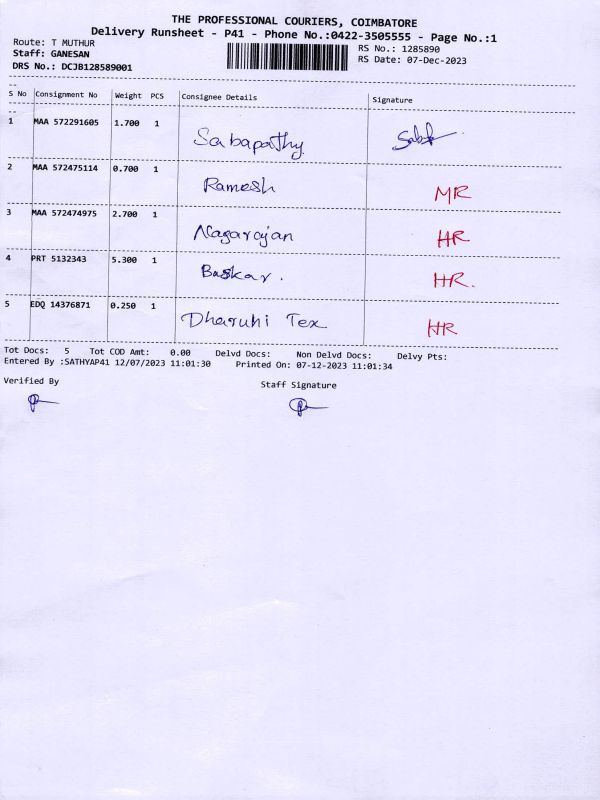 THE PROFESSIONAL COURIERS, COIMBATORE
Delivery Runsheet - P41 - Phone No.:0422-3505555 - Page No.:1
Route: T MUTHUR
Staff: GANESAN
DRS No.: DCJB128589001
RS No.: 1285890
RS Date: 07-Dec-2023
S No Consignment No Weight PCS Consignee Details Signature
1 MAA 572291605 1.700 1 Sabapathy
2 MAA 572475114 0.700 1 Ramesh MR
3 MAA 572474975 2.700 1 Nagarajan HR
4 PRT 5132343 5.300 1 Baskar. HR.
5 EDQ 14376871 0.250 1 Dharuhi Tex HR
Tot Docs: 5 Tot COD Amt: 0.00 Delvd Docs: Non Delvd Docs: Delvy Pts:
Entered By :SATHYAP41 12/07/2023 11:01:30 Printed On: 07-12-2023 11:01:34
Verified By Staff Signature